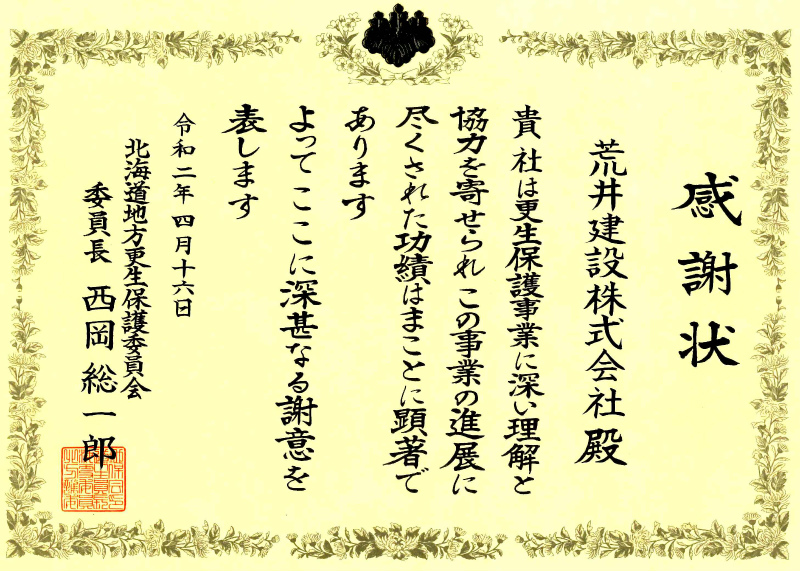 感謝状
荒井建設株式会社殿
貴社は更生保護事業に深い理解と
協力を寄せられこの事業の進展に
尽くされた功績はまことに顕著で
あります
よってここに深甚なる謝意を
表します
令和二年四月十六日
北海道地方更生保護委員会
委員長 西岡総一郎